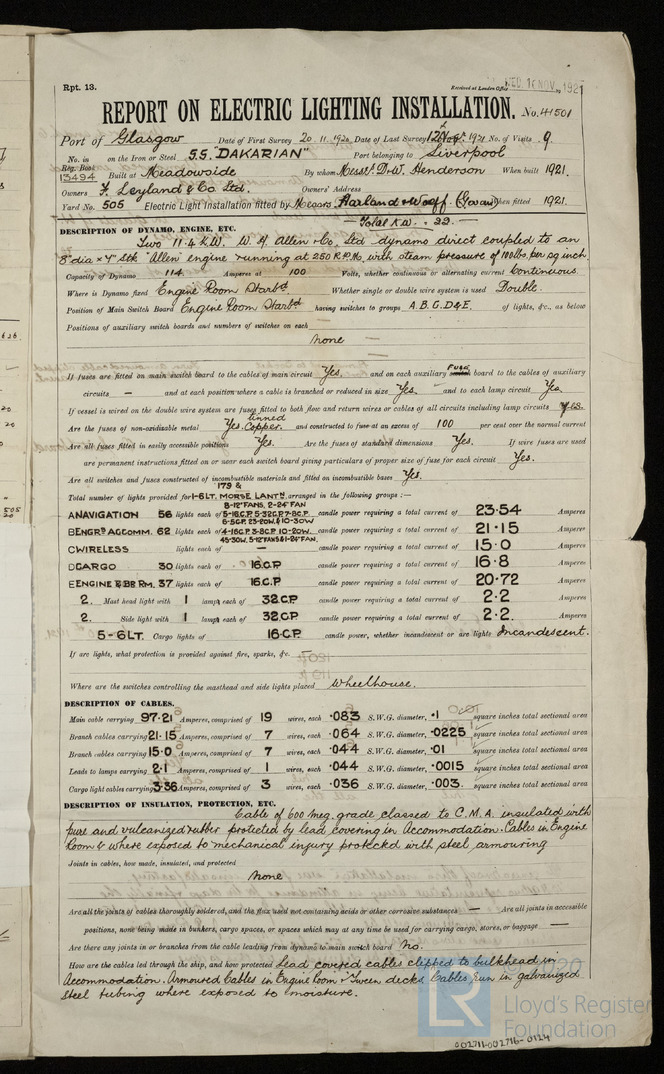 Rpt. 13.
Received at London Office WED. 16 NOV. 1921
REPORT ON ELECTRIC LIGHTING INSTALLATION. No. 41501
Port of Glasgow Date of First Survey 20.11.1920 Date of Last Survey 1921 No. of Visits 9
No. in Reg. Book 13494 on the Iron or Steel S.S. "DAKARIAN" Port belonging to Liverpool
Built at Meadowside By whom Messrs. D. & W. Henderson When built 1921.
Owners F. Leyland & Co Ltd. Owners' Address
Yard No. 505 Electric Light Installation fitted by Messrs Harland & Wolff (Govan) When fitted 1921.
Total K.W. 22
DESCRIPTION OF DYNAMO, ENGINE, ETC.
Two 11.4 K.W. W. H. Allen & Co. Ltd dynamo direct coupled to an
8" dia × 4" Stk "Allen" engine running at 250 R.P.Ms, with steam pressure of 100lbs. per sq inch.
Capacity of Dynamo 114 Amperes at 100 Volts, whether continuous or alternating current Continuous.
Where is Dynamo fixed Engine Room Starbd Whether single or double wire system is used Double.
Position of Main Switch Board Engine Room Starbd having switches to groups A.B.C.D&E. of lights, &c., as below
Positions of auxiliary switch boards and numbers of switches on each
None
If fuses are fitted on main switch board to the cables of main circuit Yes. and on each auxiliary Fuse board to the cables of auxiliary
circuits — and at each position where a cable is branched or reduced in size Yes. and to each lamp circuit Yes
If vessel is wired on the double wire system are fuses fitted to both flow and return wires or cables of all circuits including lamp circuits Yes
Are the fuses of non-oxidizable metal Yes. Tinned Copper. and constructed to fuse at an excess of 100 per cent over the normal current
Are all fuses fitted in easily accessible positions Yes. Are the fuses of standard dimensions Yes. If wire fuses are used
are permanent instructions fitted on or near each switch board giving particulars of proper size of fuse for each circuit Yes.
Are all switches and fuses constructed of incombustible materials and fitted on incombustible bases Yes.
Total number of lights provided for 179 & 1-6LT. MORSE LANTN. arranged in the following groups :—
8-12" FANS, 2-24" FAN
A NAVIGATION 56 lights each of 5-16C.P. 5-32C.P. 7-8C.P. 6-5C.P. 23-20W. & 10-30W candle power requiring a total current of 23.54 Amperes
B ENGRS ACCOMM. 62 lights each of 4-16C.P. 3-8C.P. 10-20W. 45-30W. 5-12" FANS & 1-24" FAN. candle power requiring a total current of 21.15 Amperes
C WIRELESS lights each of — candle power requiring a total current of 15.0 Amperes
D CARGO 30 lights each of 16.C.P. candle power requiring a total current of 16.8 Amperes
E ENGINE & BR RM. 37 lights each of 16.C.P candle power requiring a total current of 20.72 Amperes
2. Mast head light with 1 lamps each of 32.C.P. candle power requiring a total current of 2.2 Amperes
2. Side light with 1 lamps each of 32.C.P candle power requiring a total current of 2.2. Amperes
5-6LT. Cargo lights of 16.C.P. candle power, whether incandescent or arc lights Incandescent.
If arc lights, what protection is provided against fire, sparks, &c. —
Where are the switches controlling the masthead and side lights placed Wheelhouse.
DESCRIPTION OF CABLES.
Main cable carrying 97.21 Amperes, comprised of 19 wires, each .083 S.W.G. diameter, .1 square inches total sectional area
Branch cables carrying 21.15 Amperes, comprised of 7 wires, each .064 S.W.G. diameter, .0225 square inches total sectional area
Branch cables carrying 15.0 Amperes, comprised of 7 wires, each .044 S.W.G. diameter, .01 square inches total sectional area
Leads to lamps carrying 2.1 Amperes, comprised of 1 wires, each .044 S.W.G. diameter, .0015 square inches total sectional area
Cargo light cables carrying 3.36 Amperes, comprised of 3 wires, each .036 S.W.G. diameter, .003. square inches total sectional area
DESCRIPTION OF INSULATION, PROTECTION, ETC.
Cable of 600 meg. grade classed to C.M.A. insulated with
pure and vulcanized rubber protected by lead covering in Accommodation. Cables in Engine
Room & where exposed to mechanical injury protected with steel armouring
Joints in cables, how made, insulated, and protected
None
Are all the joints of cables thoroughly soldered, and the flux used not containing acids or other corrosive substances — Are all joints in accessible
positions, none being made in bunkers, cargo spaces, or spaces which may at any time be used for carrying cargo, stores, or baggage —
Are there any joints in or branches from the cable leading from dynamo to main switch board No.
How are the cables led through the ship, and how protected Lead covered cables clipped to bulkhead in
Accommodation. Armoured Cables in Engine Room & 'Tween decks. Cables run in galvanized
steel tubing where exposed to moisture.
© 2020
LR
Lloyd's Register
Foundation
002711-002716-0124